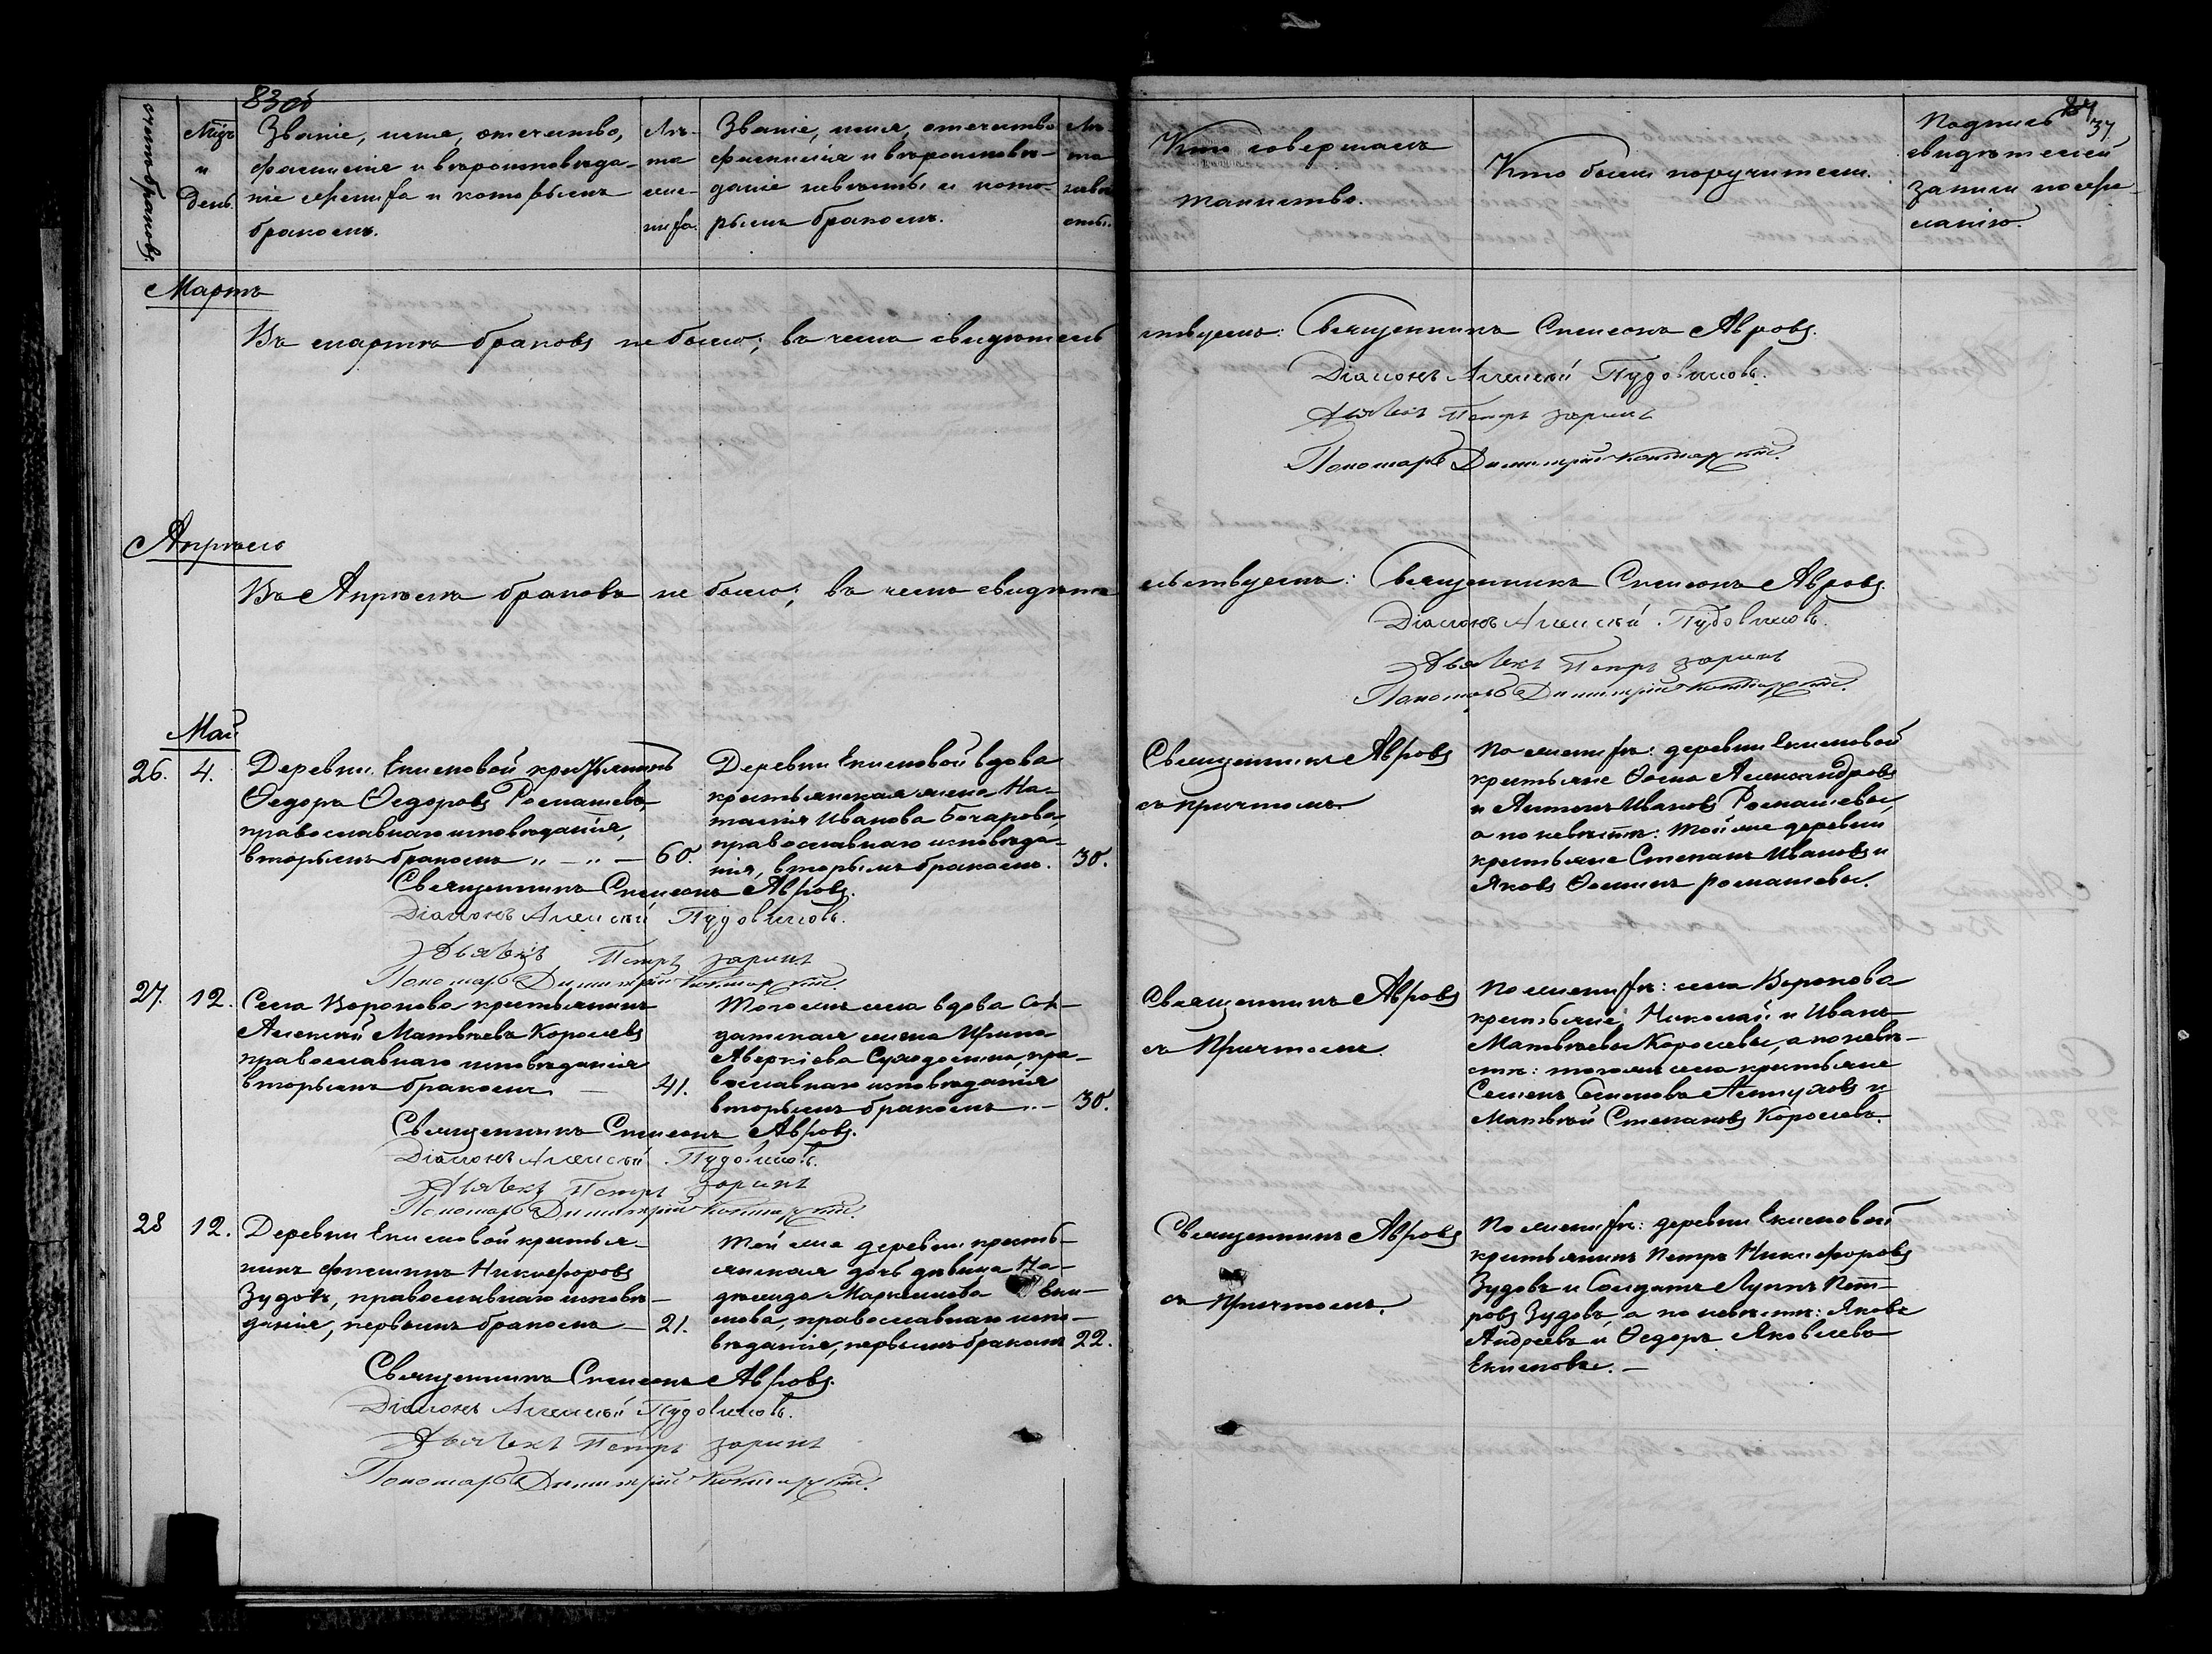 83 об
84
37
счетъ браковъ.
Мѣсяцъ
и
День.
Званіе, имя, отечество,
фамилія и вѣроисповѣда-
ніе жениха и которымъ
бракомъ.
Лѣ-
та
же-
ниха.
Званіе, имя, отечество
фамилія и вѣроисповѣ-
даніе невѣсты и кото-
рымъ бракомъ.
Лѣ-
та
невѣ-
сты.
Кто совершалъ
таинство.
Кто были поручители.
Подпись
свидѣтелей
записи по же-
ланію.
Мартъ
Въ мартѣ браковъ не было; въ чемъ свидѣтель ствуемъ: Священникъ Симеонъ Авровъ.
Діаконъ Алексѣй Пудовиковъ.
Дьячекъ Петръ Заринъ
Пономарь Димитрій
Апрѣль
Въ Апрѣлѣ браковъ не было; въ чемъ свидѣте льствуемъ: Священникъ Симеонъ Авровъ.
Діаконъ Алексѣй Пудовиковъ.
Дьячекъ Петръ Заринъ
Пономарь Димитрій
Май
26. 4.
Деревни Екимовой крестьянинъ
Ѳедоръ Ѳедоровъ Ромашевъ,
православнаго исповѣданія,
вторымъ бракомъ „ — „ — 60.
Деревни Екимовой вдова
крестьянская жена На-
талія Иванова Бочарова,
православнаго исповѣда-
нія, вторымъ бракомъ. 30.
Священникъ Авровъ
съ причтомъ.
По женихѣ: деревни Екимовой
крестьяне Ѳома Александровъ
и Антонъ Ивановъ Ромашевы
а по невѣстѣ: той же деревни
крестьяне Степанъ Ивановъ и
Яковъ Ѳоминъ Ромашевы.
Священникъ Симеонъ Авровъ.
Діаконъ Алексѣй Пудовиковъ.
Дьячекъ Петръ Заринъ
Пономарь Димитрій
27. 12.
Села Воронова крестьянинъ
Алексѣй Матвѣевъ Королевъ
православнаго исповѣданія
вторымъ бракомъ. — 41.
Тогожъ села вдова Сол-
датская жена Ирина
Аверкіева Суходолина, пра-
вославнаго исповѣданія
вторымъ бракомъ. — 30.
Священникъ Авровъ
съ Причтомъ.
По женихѣ: села Воронова
крестьяне, Николай и Иванъ
Матвѣевы Королевы, а по невѣ-
стѣ: тогожъ села крестьяне
Семенъ Семеновъ и
Матвѣй Степановъ Королевъ.
Священникъ Симеонъ Авровъ.
Діаконъ Алексѣй Пудовиковъ.
Дьячекъ Петръ Заринъ
Пономарь Димитрій
28 12.
Деревни Екимовой крестья-
нинъ Филиппъ Никифоровъ
Зудовъ, православнаго исповѣ-
данія, первымъ бракомъ — 21.
Той же деревни кресть-
янская дочь дѣвица На-
дежда Маркелова Еки-
мова, православнаго испо-
вѣданія, первымъ бракомъ 22.
Священникъ Авровъ
съ Причтомъ.
По женихѣ: деревни Екимовой
крестьянинъ Петръ Никифоровъ
Зудовъ и Солдатъ Лупъ Пет-
ровъ Зудовъ, а по невѣстѣ: Яковъ
Андреевъ и Ѳедоръ Яковлевъ
Екимовы. —
Священникъ Симеонъ Авровъ.
Діаконъ Алексѣй Пудовиковъ.
Дьячекъ Петръ Заринъ
Пономарь Димитрій